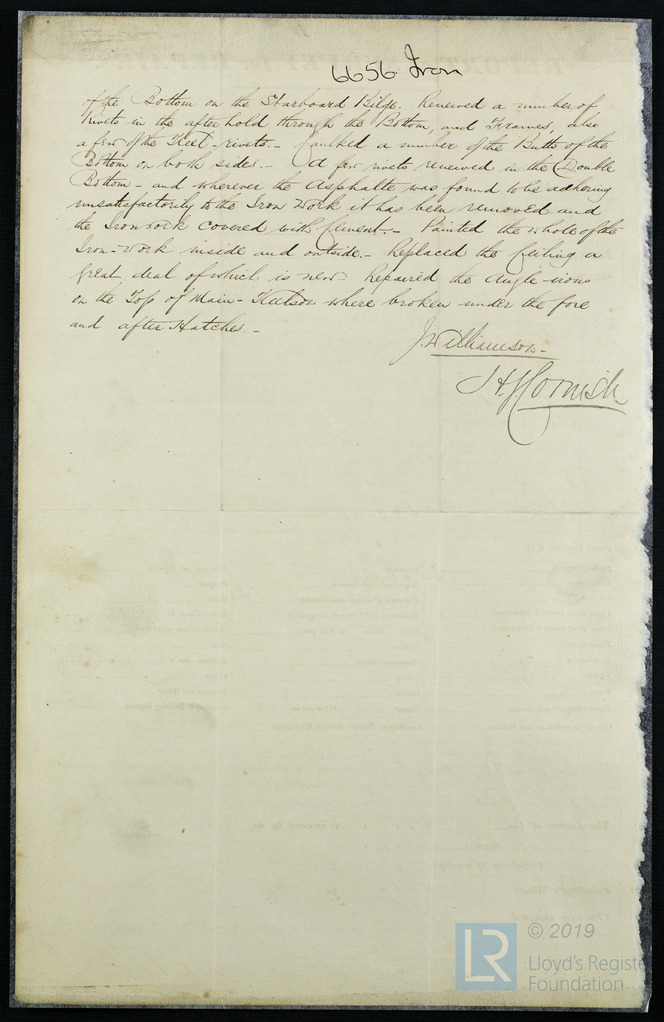 6656 Iron
of the Bottom on the Starboard Bilge. Renewed a number of
rivets in the after hold through the Bottom, and Frames, also
a few of the Keel-rivets. - Caulked a number of the Butts of the
Bottom on both sides. - A few rivets renewed in the Double
Bottom - and wherever the Asphalte was found to be adhering
unsatisfactorily to the Iron Work it has been removed and
the Ironwork covered with Cement. - Painted the whole of the
Iron-work inside and outside. - Replaced the Ceiling a
great deal of which is new. Repaired the angle-irons
on the Top of Main-Keelson where broken under the fore
and after Hatches. -
J. Williamson -
J H Cornish
© 2019
LR
Lloyd's Registe
Foundation